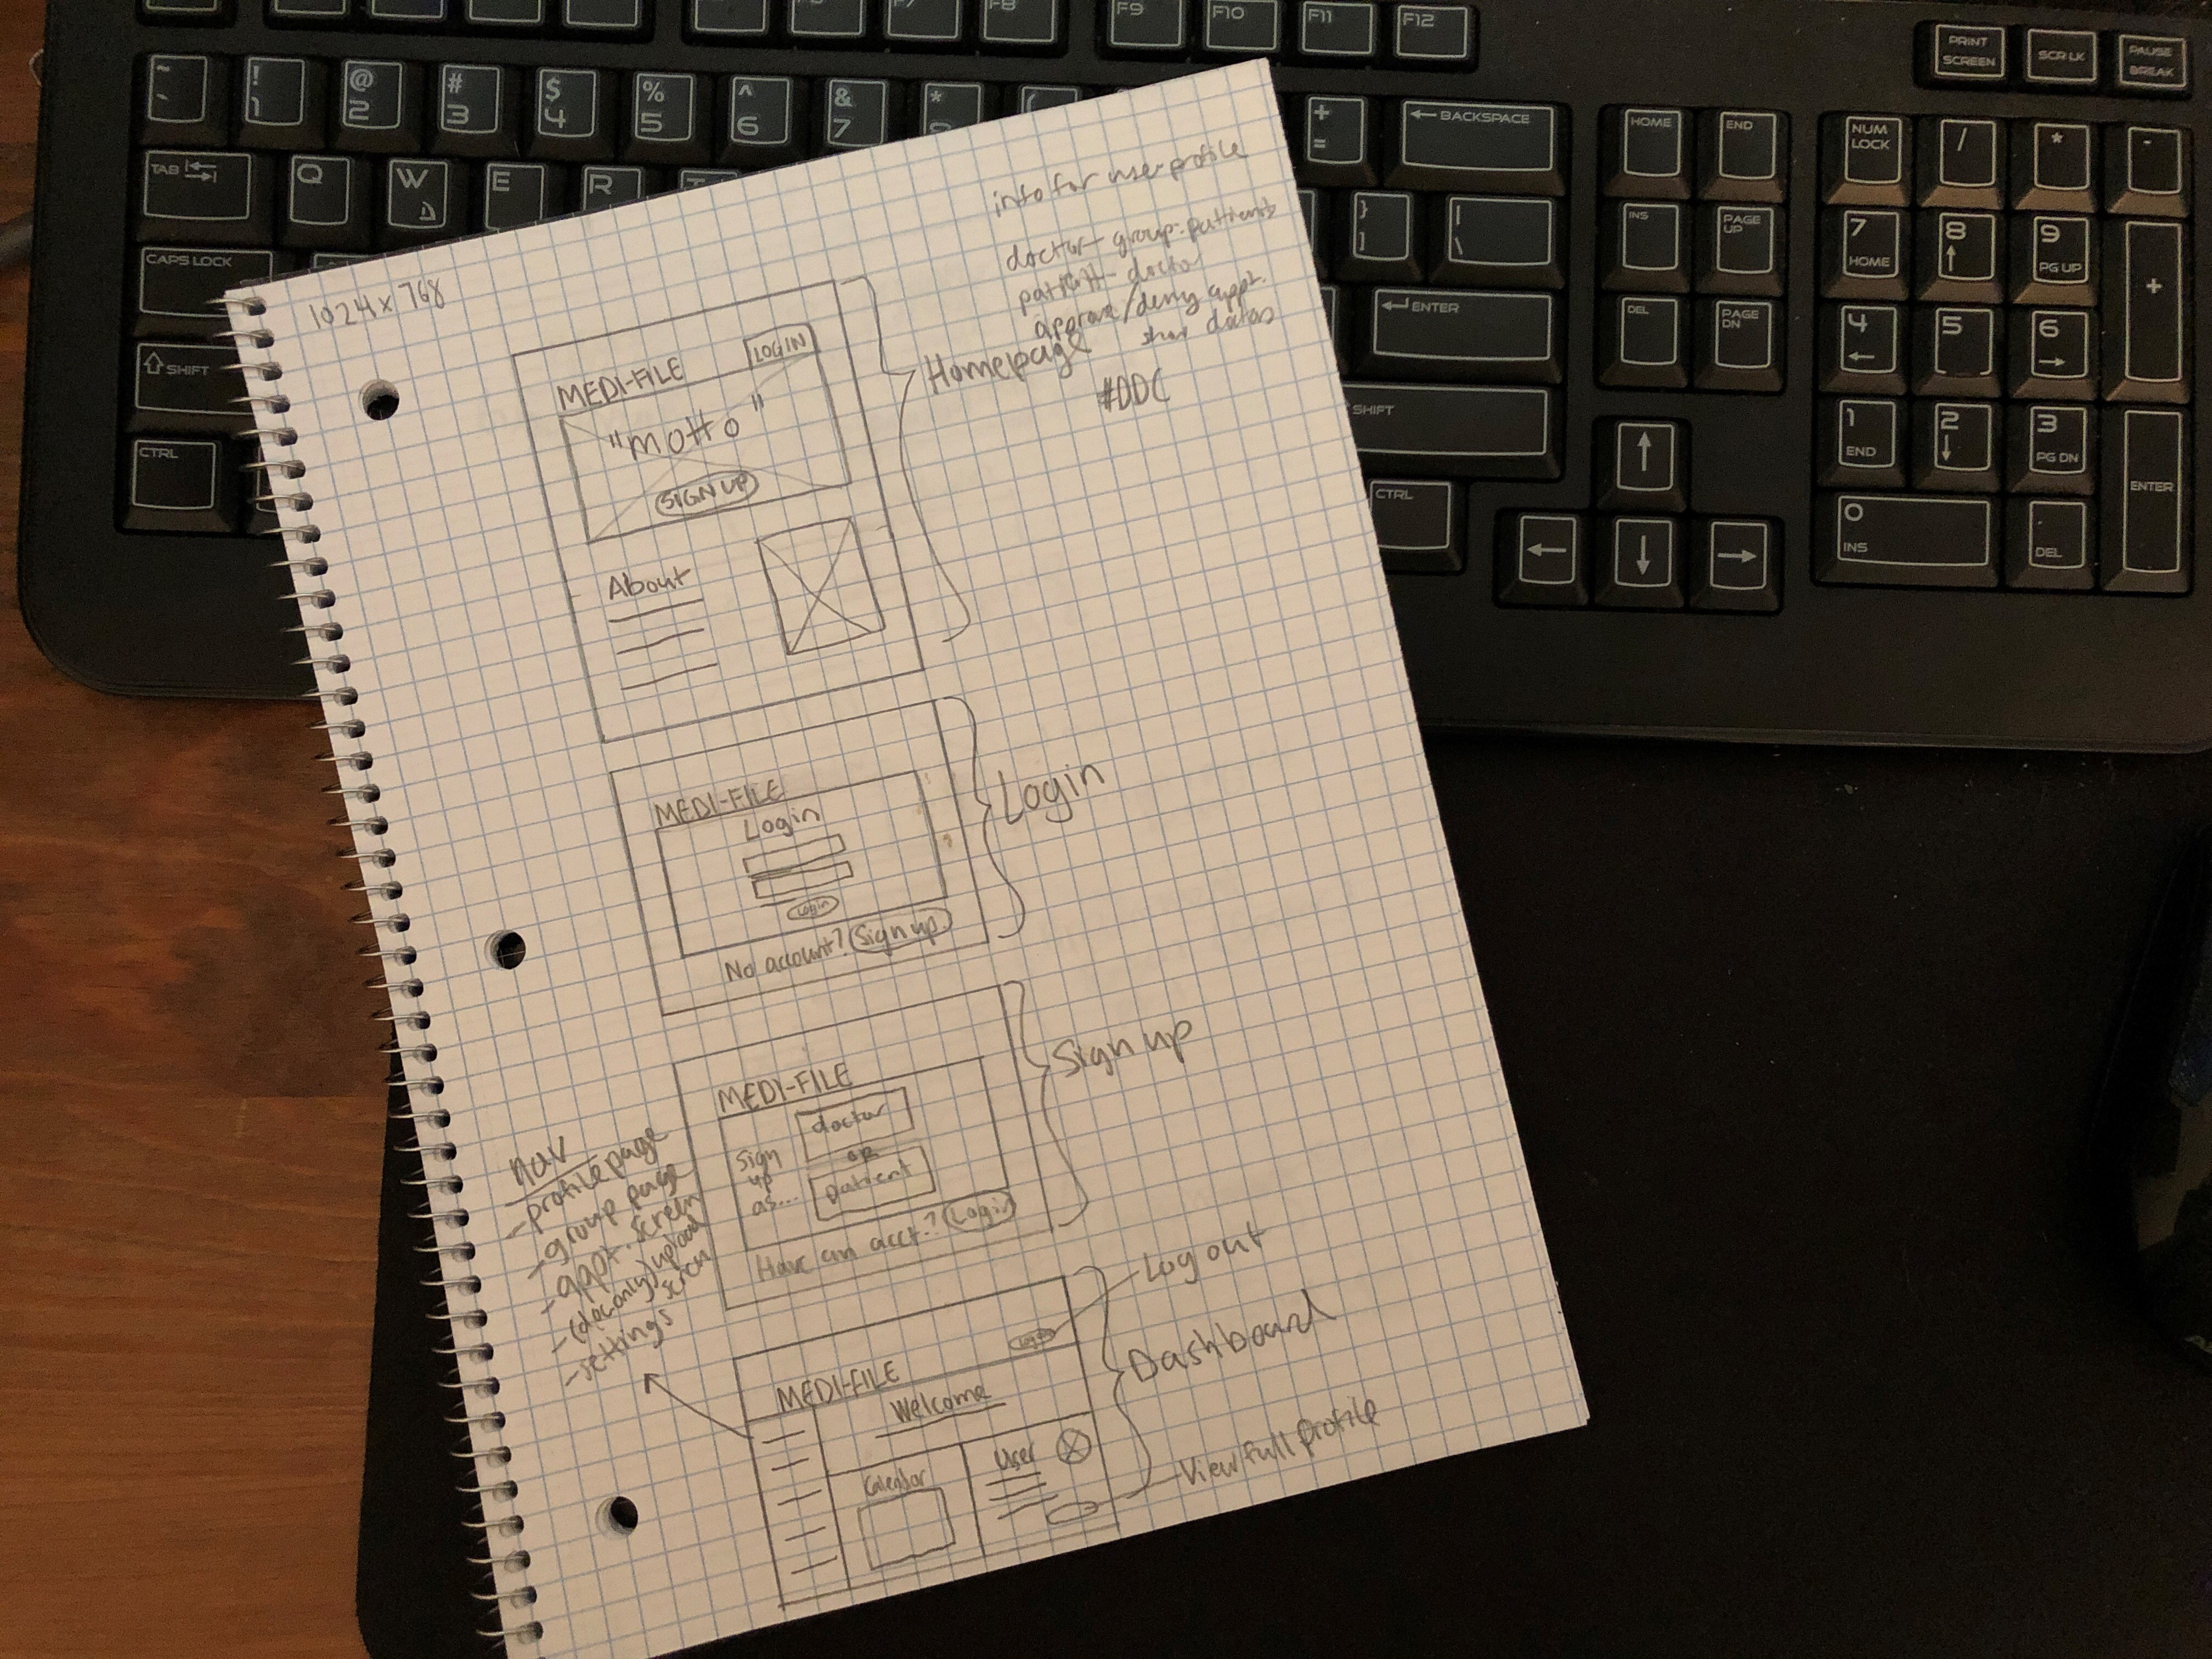 1024 x 768
info for user profile
doctor - group - patients
patient - doctor
approve/deny appt.
share
#DDC
MEDI-FILE
LOGIN
"motto"
SIGN UP
About
Homepage
MEDI-FILE
Login
Login
No account? Sign up
Login
MEDI-FILE
Sign up as...
doctor
or
patient
Have an acct.? Login
Sign up
nav
- profile page
- group page
- appt. screen
- (doc only) upload screen
- settings
MEDI-FILE
Welcome
Calendar
User
Log out
Dashboard
View full profile
F9
F10
F11
F12
PRINT SCREEN
SCR LK
PAUSE BREAK
~
!
1
@
2
#
3
$
4
%
5
^
6
&
7
*
+
=
← BACKSPACE
HOME
END
NUM LOCK
/
*
-
TAB
Q
W
E
R
}
]
|
\
INS
PAGE UP
7
HOME
8
↑
9
PG UP
+
CAPS LOCK
↵ ENTER
DEL
PAGE DN
4
←
5
6
→
SHIFT
SHIFT
↑
1
END
2
↓
3
PG DN
ENTER
CTRL
CTRL
←
↓
→
0
INS
DEL